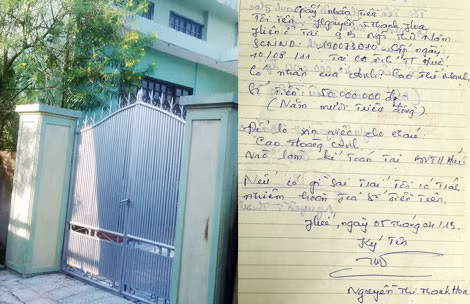 Giấy nhận tiền
Tôi tên Nguyễn Thanh Hoa
Hiện ở tại 9B Ngô Thì Nhậm
SCMND: cấp ngày
10/08/11 Tại CA tỉnh TT Huế.
Có nhận của anh: Cao
Số tiền: 50.000.000 đ
(Năm mươi triệu đồng).
Để lo xin việc cho cháu:
Cao Hoàng
Vào làm kế toán tại Huế
Nếu có gì sai trái tôi có trách
nhiệm hoàn trả số tiền trên.
Huế, ngày 05 tháng 04/13.
Ký tên
Nguyễn Thị Thanh Hoa